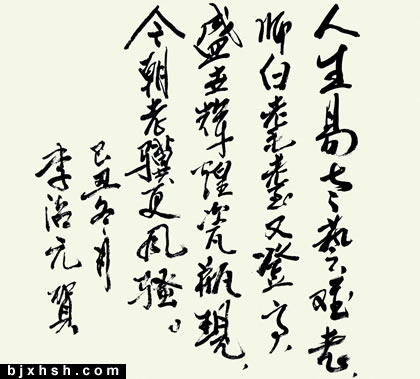 人生易老藝难老，
师白耄耋又登高，
盛世辉煌瓷瓶現，
今朝老骥更风骚。
己丑冬月
李治元贺
bjxhsh.com